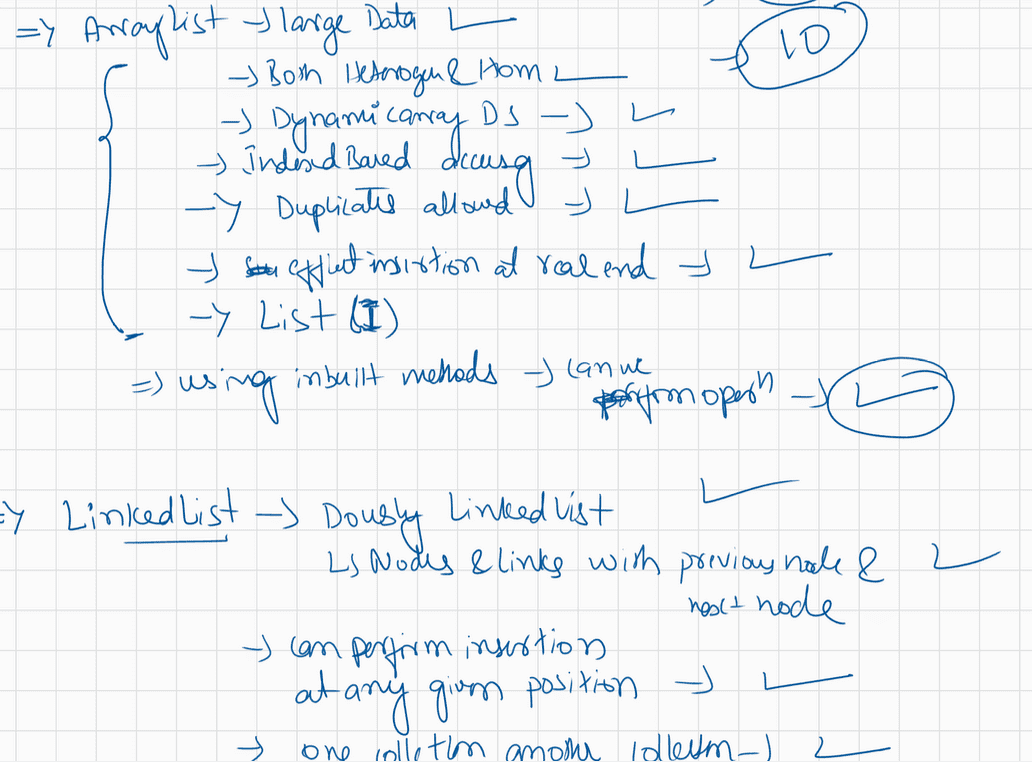 => ArrayList -> large Data
-> 10
-> Both Heterogen & Hom
-> Dynamic array DS ->
-> Indexed Based accessg ->
-> Duplicates allowed ->
-> effient insertion at real end ->
-> List (I)
=> using inbuilt methods -> can we
perform opern ->
=> LinkedList -> Dously Linked List
L> Nodes & links with previous node &
next node
-> can perform insertion
at any given position ->
-> one colletion another colletion ->